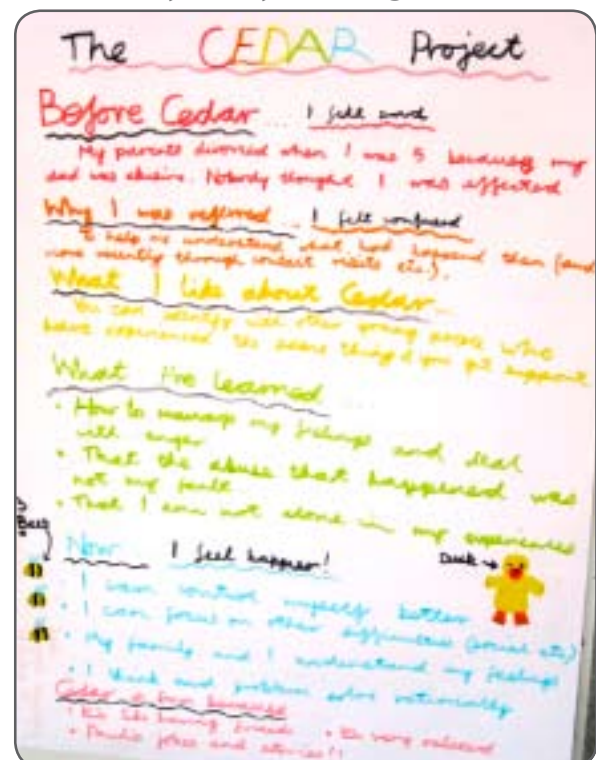 The CEDAR Project
Before Cedar... I felt
My parents divorced when I was 5 because my
dad was abusive. Nobody thought I was affected
Why I was referred... I felt confused
To help me understand what had happened then (and
more recently through contact visits etc.).
What I like about Cedar...
You can identify with other young people who
have experienced the same things & you get support
What I've learned ...
• How to manage my feelings and deal
with anger
• That the abuse that happened was
not my fault
• That I am not alone in my experiences
3
Bees
Now I feel happier!
Duck
• I can control myself better
• I can focus on other difficulties (social etc)
• My family and I understand my feelings
• I think and problem solve rationally
Cedar is fun because
• It's like having friends
• It's very relaxed
• jokes and stories!!